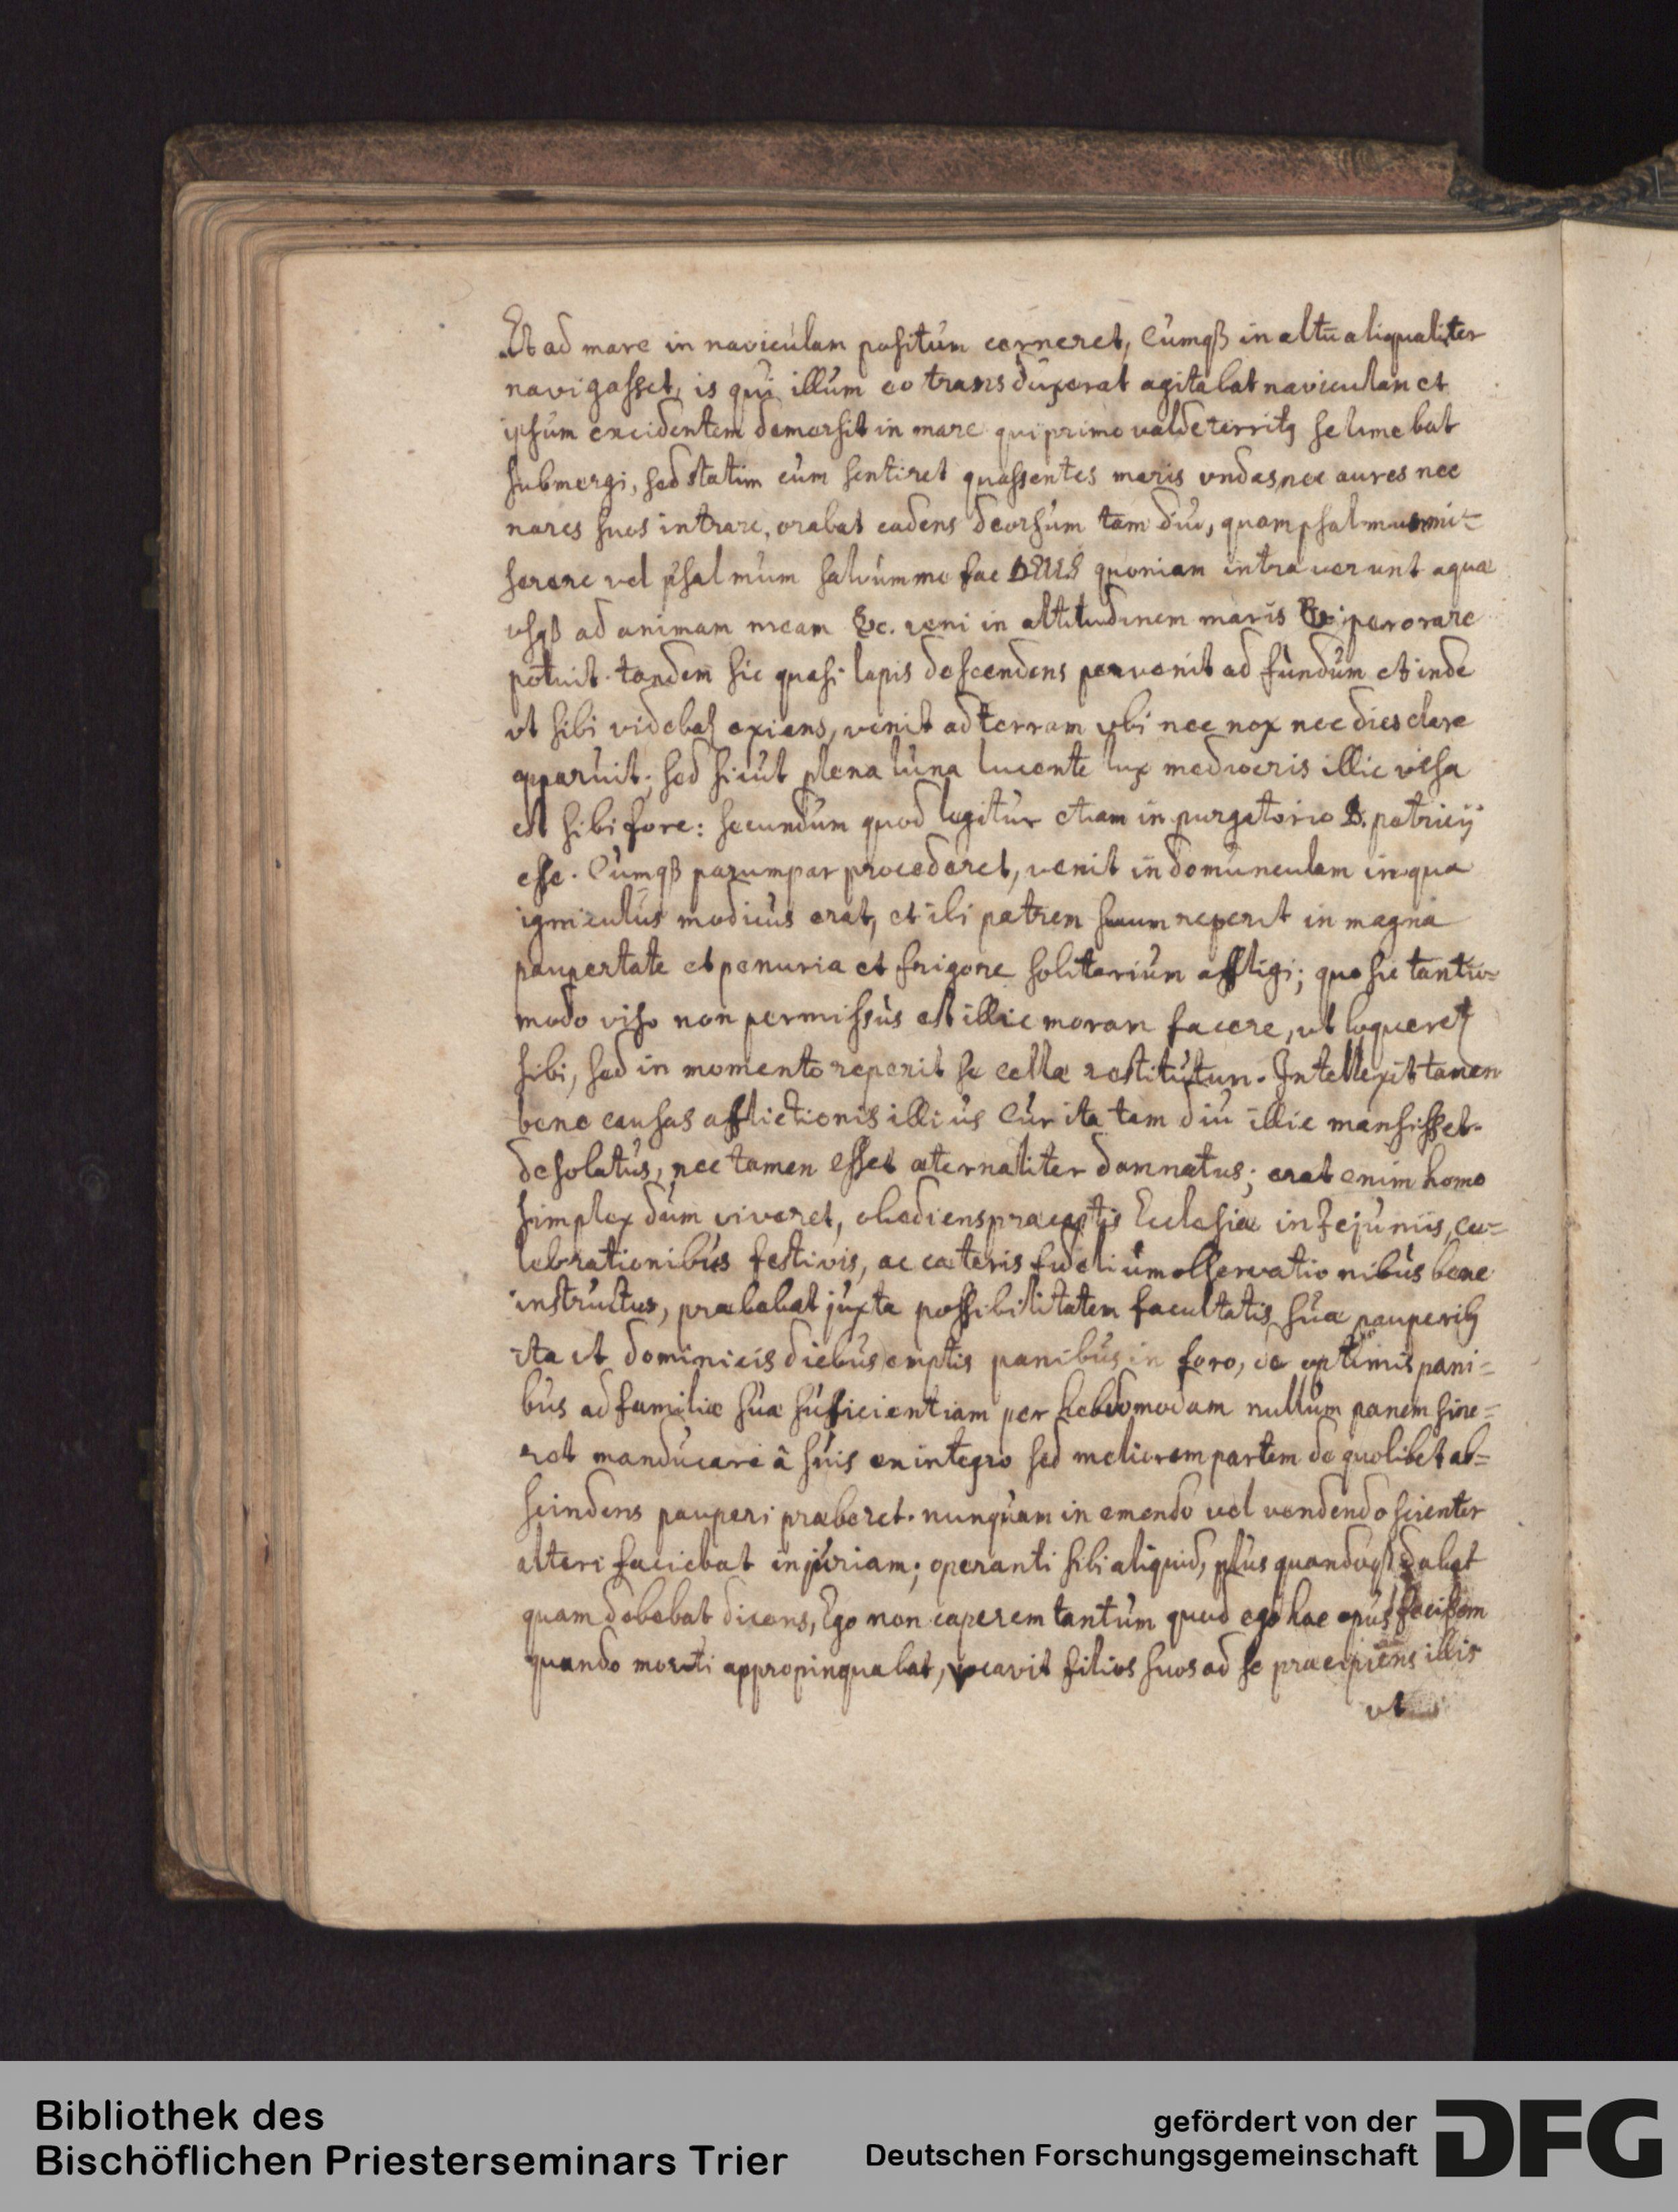 Et ad mare in naviculam positum cerneret, Cumqß in altū aliqualiter
navigasset, is qui illum eo transduxerat agitabat naviculam et
ipsum excidentem demersit in mare qui primo valde territ9 se timebat
submergi, sed statim cum sentiret quassentes maris vndas nec aures nec
nares suos intrare, orabat cadens deorsum tam diu, quam psalmum mi-
serere vel psalmum salvum me fac DEUS quoniam intraverunt aquæ
vsqß ad animam meam &c. veni in altitudinem maris perorare
potuit. tandem sic quasi lapis descendens pervenit ad fundum et inde
vt sibi videbat exiens, venit ad terram vbi nec nox nec dies clare
apparuit; sed sicut plena luna lucente lux mediocris illic visa
est sibi fore: secundum quod legitur etiam in purgatorio S. patricij
esse. Cumqß parumper procederet, venit in domunculam in qua
igniculus modicus erat, et ibi patrem suum reperit in magna
paupertate et penuria et frigore solitarium affligi; quo sic tantū-
modo viso non permissus est illic moram facere, ut loqueret
sibi, sed in momento reperit se cellæ restitutum. Intellexit tamen
bene causas afflictionis illius Cur ita tam diu illic mansisset
desolatus, nec tamen esset æternaliter damnatus; erat enim homo
simplex dum viveret, obediens præceptis Ecclesiæ in Jejuniis, ce-
lebrationibus festivis, ac cæteris fidelium observationibus bene
instructus, præbebat juxta possibilitatem facultatis suæ pauperib9
ita vt dominicis diebus emptis panibus in foro, de optimis pani-
bus ad familiæ suæ suficientiam per hebdomodam nullum panem sine-
ret manducari â suis ex integro sed meliorem partem de quolibet ab-
scindens pauperi præberet. nunquam in emendo vel vendendo scienter
alteri faciebat injuriam; operanti sibi aliquid, plus quandoqß dabat
quam debebat dicens, Ego non caperem tantum quod ego hoc opus fecissem
quando morti appropinquabat, vocavit filios suos ad se præcipiens illis
vt
Bibliothek des
Bischöflichen Priesterseminars Trier
gefördert von der
Deutschen Forschungsgemeinschaft
DFG